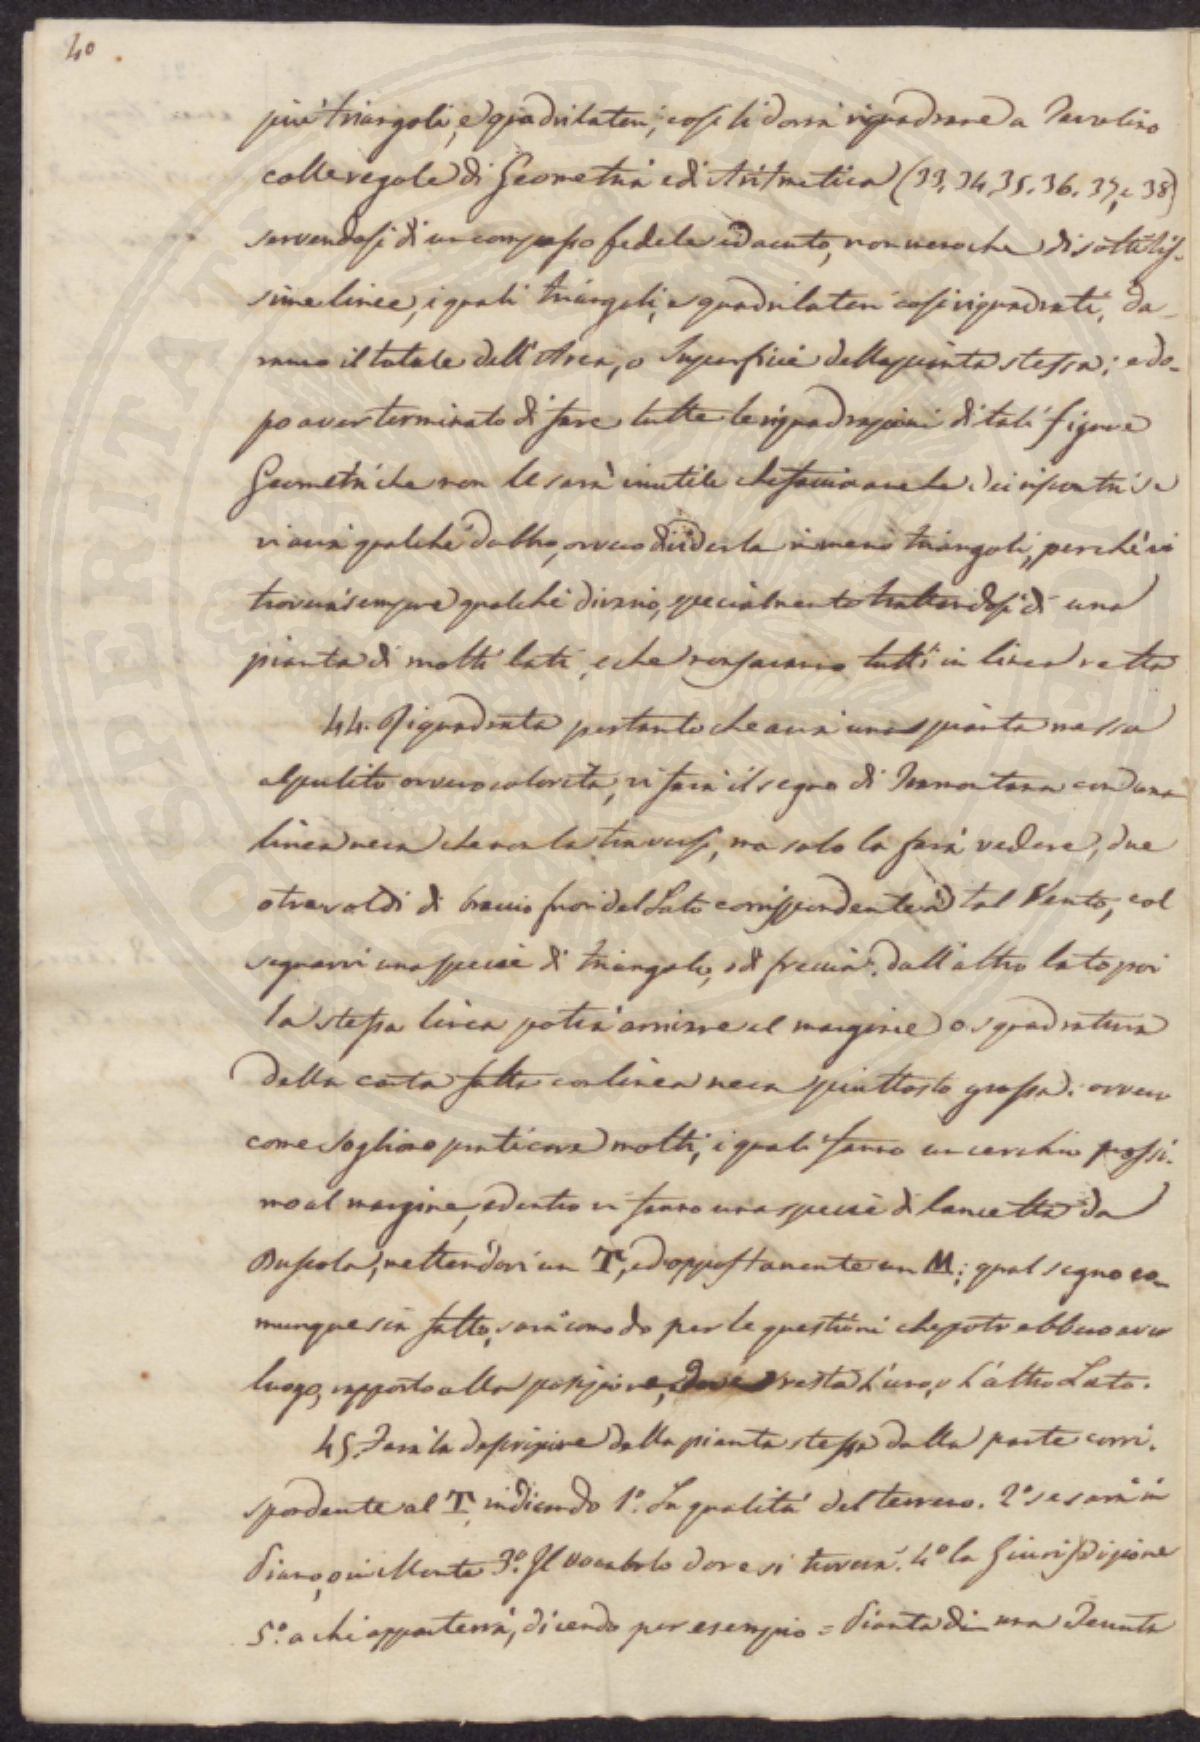 40
più triangoli, e quadrilateri, così li dovrà riquadrare a Tavolino
colle regole di Geometria e di Aritmetica (33, 34, 35. 36. 37, e 38)
servendosi di un compasso fedele ed acuto, non meno che di sottilis-
sime linee, i quali triangoli, e quadrilateri così riquadrati, da-
ranno il totale dell'Area, o Superficie della pianta stessa; e do-
po aver terminato di fare tutte le riquadrazioni di tali figure
Geometriche non le sarà inutile che faccia anche dei riscontri se
vi avrà qualche dubbio, ovvero dividerla in meno triangoli, perchè vi
troverà sempre qualche divario, specialmente trattandosi di una
pianta di molti lati, e che non saranno tutti in linea retta
44. Riquadrata pertanto che avrà una pianta messa
al pulito ovvero colorita, vi farà il segno di Tramontana con una
linea nera che non la traversi, ma solo la farà vedere, due
o tre soldi di braccio fuori del Lato corrispondente a tal Vento, col
segnarvi una specie di triangolo, o di freccia. dall'altro lato poi
la stessa linea potrà arrivare al margine o squadratura
della carta fatta con linea nera piuttosto grossa; ovvero
come sogliono praticare molti, i quali fanno un cerchio prossi-
mo al margine, e dentro vi fanno una specie di lancetta da
Bussola, mettendovi un T, ed oppostamente un M; qual segno co-
munque sia fatto, sarà comodo per le questioni che potrebbero aver
luogo, rapporto alla posizione, dove resta l'uno, o l'altro Lato.
45. Farà la descrizione della pianta stessa dalla parte corri-
spondente al T, indicando 1.º La qualità del terreno. 2º se sarà in
Piano, o in Monte 3.º Il vocabolo dove si troverà. 4.º la Giurisdizione
5.º a chi apparterrà, dicendo per esempio = Pianta di una Tenuta